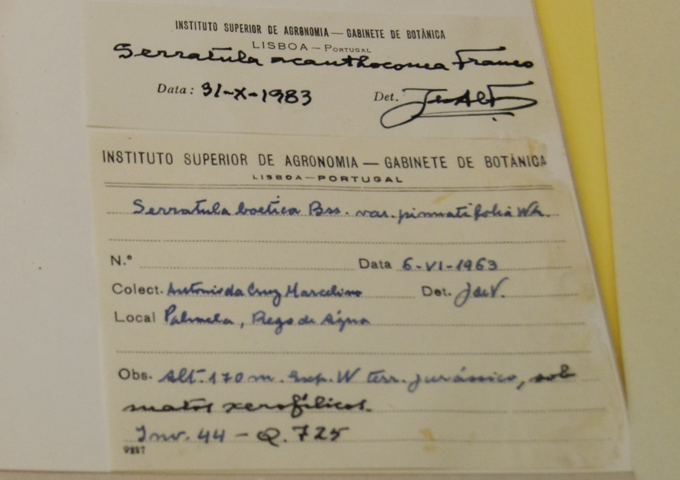 INSTITUTO SUPERIOR DE AGRONOMIA — GABINETE DE BOTÂNICA
LISBOA — PORTUGAL
Serratula acanthocoma Franco
Data: 31-X-1983 Det.
INSTITUTO SUPERIOR DE AGRONOMIA — GABINETE DE BOTÂNICA
LISBOA — PORTUGAL
Serratula boetica Bss. var. pinnatifolia Wk.
N.º Data 6-VI-1963
Colect. Antonio da Cruz Marcelino Det. J. de V.
Local Palmela, Rego de Água
Obs. Alt. 170 m. Exp. W terr. jurássico, sob
matos xerofílicos.
Inv. 44 – Q. 725